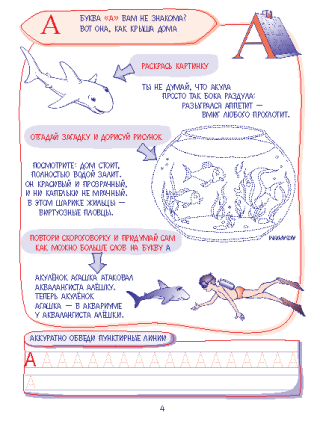 А
БУКВА «А» ВАМ НЕ ЗНАКОМА?
ВОТ ОНА, КАК КРЫША ДОМА
А
РАСКРАСЬ КАРТИНКУ
ТЫ НЕ ДУМАЙ, ЧТО АКУЛА
ПРОСТО ТАК БОКА РАЗДУЛА:
РАЗЫГРАЛСЯ АППЕТИТ —
ВМИГ ЛЮБОГО ПРОГЛОТИТ.
ОТГАДАЙ ЗАГАДКУ И ДОРИСУЙ РИСУНОК
ПОСМОТРИТЕ: ДОМ СТОИТ,
ПОЛНОСТЬЮ ВОДОЙ ЗАЛИТ.
ОН КРАСИВЫЙ И ПРОЗРАЧНЫЙ,
И НИ КАПЕЛЬКИ НЕ МРАЧНЫЙ.
В ЭТОМ ШАРИКЕ ЖИЛЬЦЫ —
ВИРТУОЗНЫЕ ПЛОВЦЫ.
ПОВТОРИ СКОРОГОВОРКУ И ПРИДУМАЙ САМ
КАК МОЖНО БОЛЬШЕ СЛОВ НА БУКВУ А
АКУЛЁНОК АГАШКА АТАКОВАЛ
АКВАЛАНГИСТА АЛЁШКУ.
ТЕПЕРЬ АКУЛЁНОК
АГАШКА — В АКВАРИУМЕ
У АКВАЛАНГИСТА АЛЁШКИ.
АККУРАТНО ОБВЕДИ ПУНКТИРНЫЕ ЛИНИИ
А А А А А А А А А А А А А А А А
А
4